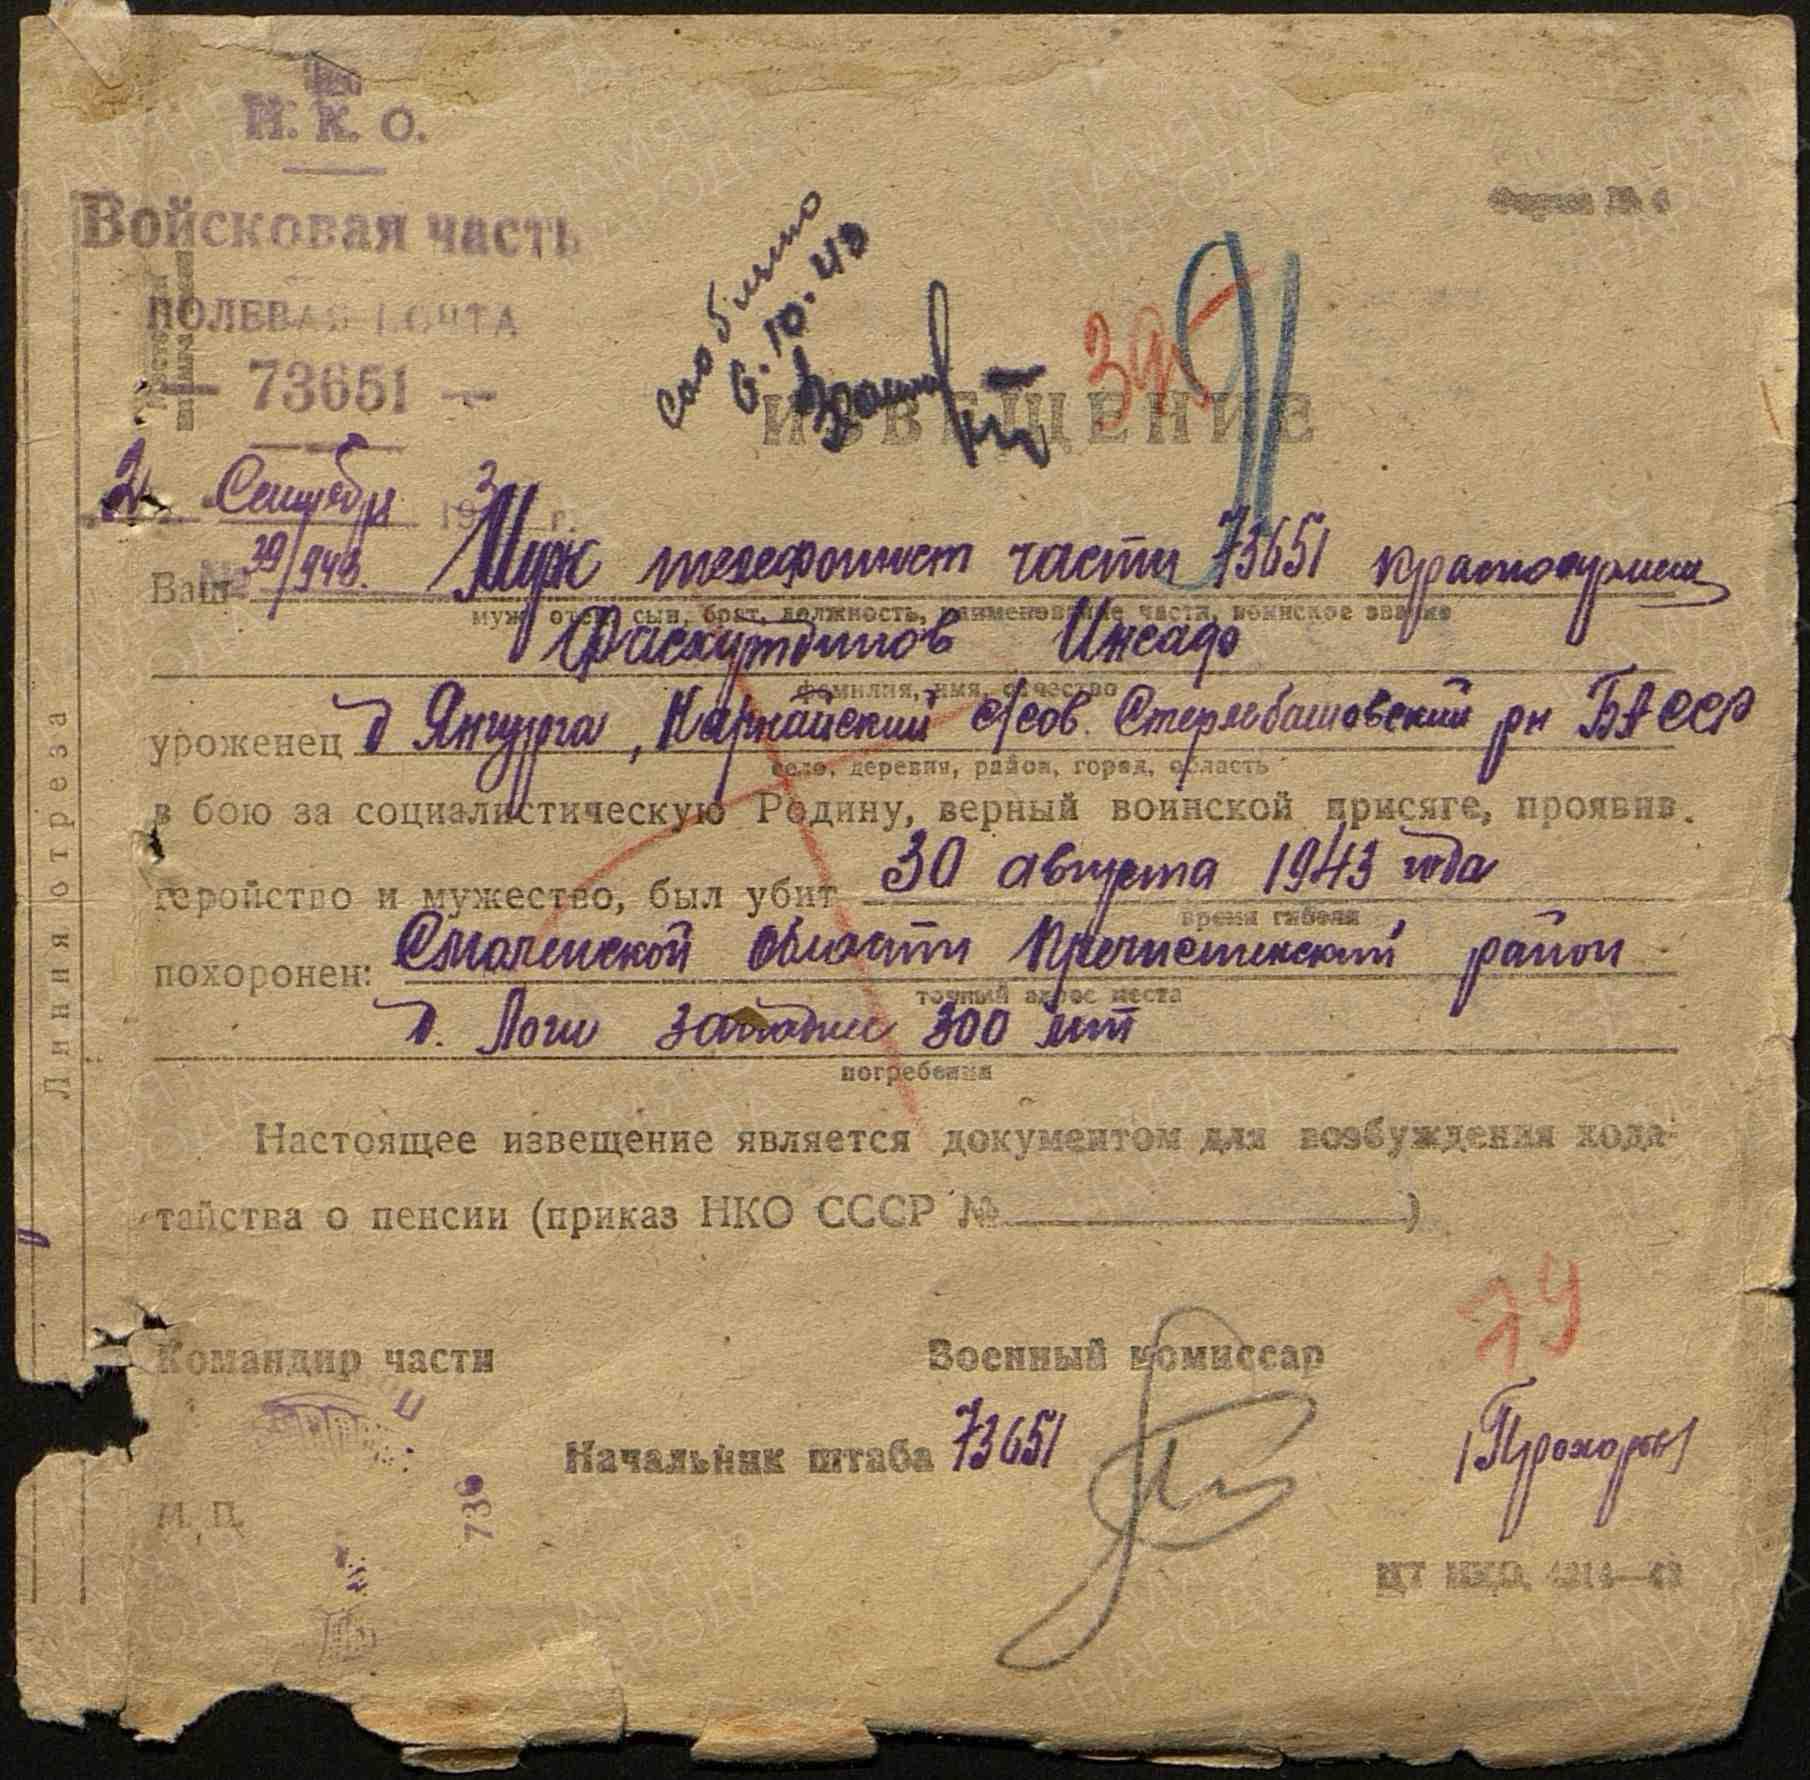 Н. К. О.
Войсковая часть
ПОЛЕВАЯ ПОЧТА
— 73651 —
Форма №
сообщено
6.10.43
395
91
ИЗВЕЩЕНИЕ
2 Сентября 1943 г.
№ 39/943.
Ваш Муж телефонист части 73651 красноармеец
муж, отец, сын, брат, должность, наименование части, воинское звание
Фасхутдинов Инсаф
фамилия, имя, отчество
уроженец д Янгурча, Карнайский с/сов. Стерлибашовский рн БАССР
село, деревня, район, город, область
в бою за социалистическую Родину, верный воинской присяге, проявив.
геройство и мужество, был убит 30 августа 1943 года
время гибели
похоронен: Смоленской области Пречистенский район
точный адрес места
д. Логи западнее 300 мт
погребения
Настоящее извещение является документом для возбуждения хода-
тайства о пенсии (приказ НКО СССР № )
79
Командир части Военный комиссар
Начальник штаба 73651 /Прохоров/
М. П.
736
ЦТ НКО.
Линия отреза
ПАМЯТЬ НАРОДА